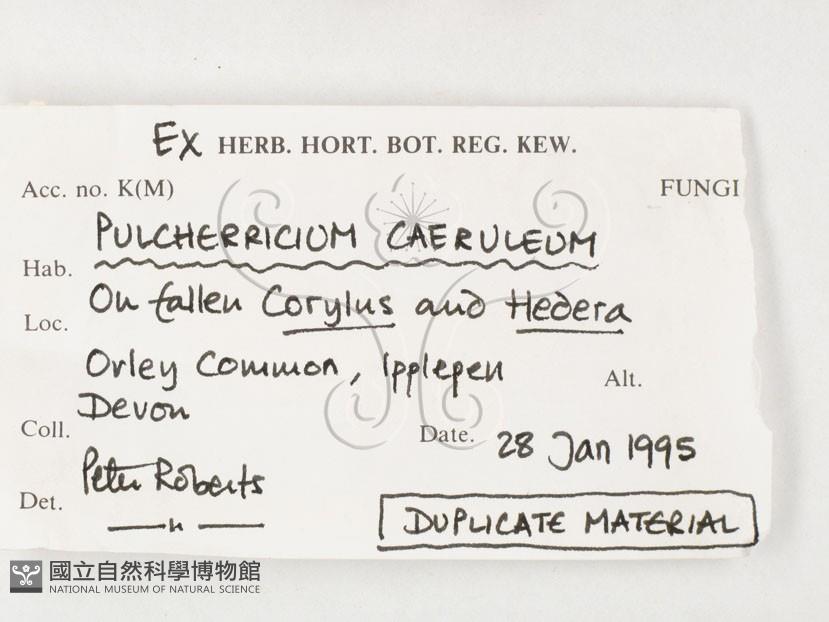 Ex HERB. HORT. BOT. REG. KEW.
Acc. no. K(M) FUNGI
PULCHERRICIUM CAERULEUM
Hab. On fallen Corylus and Hedera
Loc. Orley Common, Ipplepen Alt.
Devon
Coll. Peter Roberts Date. 28 Jan 1995
Det. — " —
DUPLICATE MATERIAL
國立自然科學博物館
NATIONAL MUSEUM OF NATURAL SCIENCE